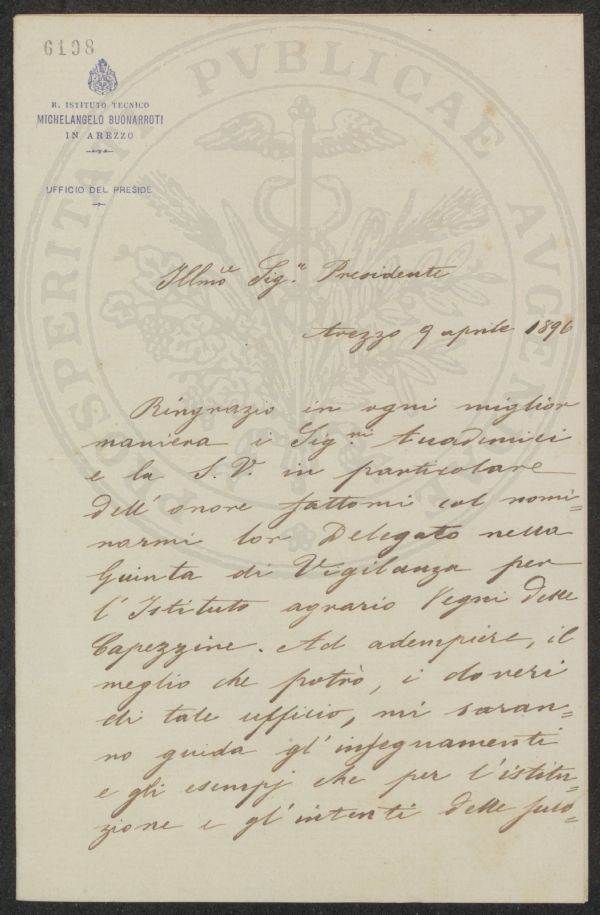 6198
R. ISTITUTO TECNICO
MICHELANGELO BUONARROTI
IN AREZZO
UFFICIO DEL PRESIDE
PROSPERITATI PVBLICAE AVGENDAE
Illmo Sig.r Presidente
Arezzo 9 aprile 1896
Ringrazio in ogni miglior
maniera i Sig.ri Accademici
e la S. V. in particolare
dell' onore fattomi col nomi=
narmi lor Delegato nella
Giunta di Vigilanza per
l'Istituto agrario Vegni delle
Capezzine. Ad adempiere, il
meglio che potrò, i doveri
di tale ufficio, mi saran=
no guida gl' insegnamenti
e gli esempj che per l'istitu=
zione e gl' intenti delle